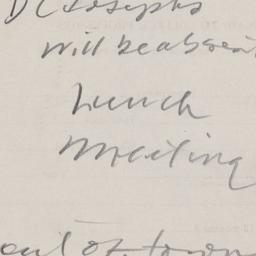 DC Josephs
will be absent
Lunch
meeting
out of town